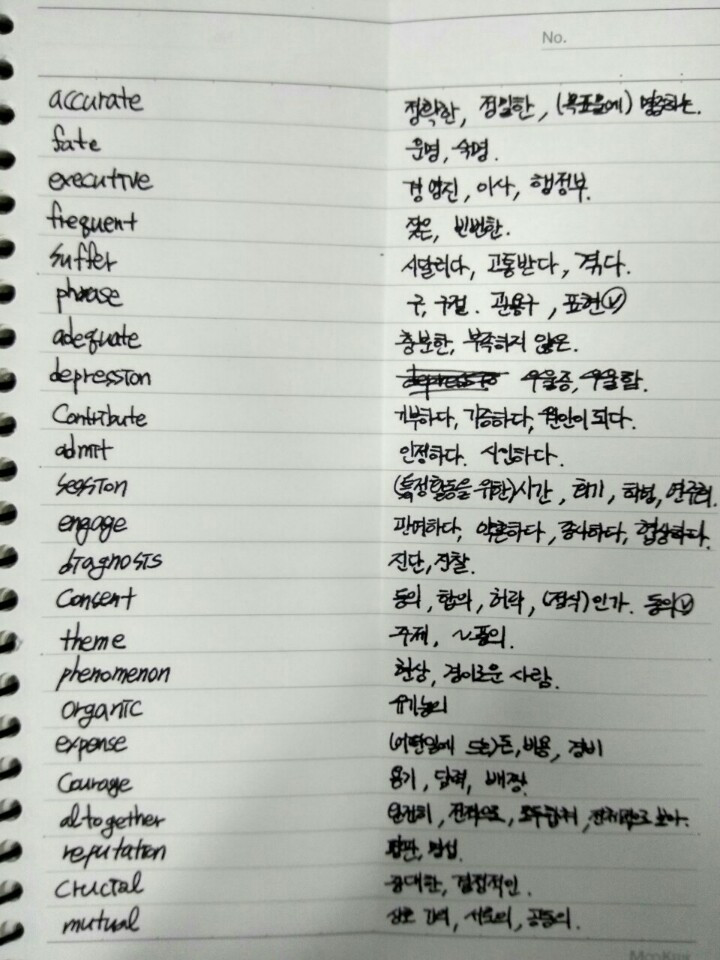 No.
accurate 정확한, 정밀한, (목표물에) 명중하는.
fate 운명, 숙명.
executive 경영진, 이사, 행정부.
frequent 잦은, 빈번한.
suffer 시달리다, 고통받다, 겪다.
phrase 구, 구절. 관용구, 표현ⓥ
adequate 충분한, 부족하지 않은.
depression 우울증, 우울함.
Contribute 기부하다, 기증하다, 원인이 되다.
admit 인정하다. 시인하다.
session (특정활동을 위한)시간, 회기, 학기, 연주회.
engage 관여하다, 약혼하다, 종사하다, 협상하다.
diagnosis 진단, 진찰.
Consent 동의, 합의, 허락, (정식)인가. 동의ⓥ
theme 주제, ~풍의.
phenomenon 현상, 경이로운 사람.
organic 유기농의
expense (어떤일에 드는)돈, 비용, 경비
Courage 용기, 담력, 배짱.
altogether 완전히, 전적으로, 모두합쳐, 전체적으로 보아.
reputation 평판, 명성.
crucial 중대한, 결정적인.
mutual 상호 간의, 서로의, 공동의.